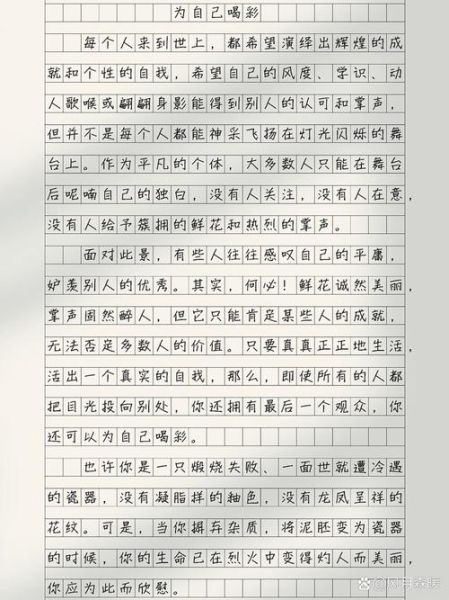 为自己喝彩
每个人来到世上，都希望演绎出辉煌的成
就和个性的自我，希望自己的风度、学识、动
人歌喉或翩翩身影能得到别人的认可和掌声，
但并不是每个人都能神采飞扬在灯光闪烁的舞
台上。作为平凡的个体，大多数人只能在舞台
后呢喃自己的独白，没有人关注，没有人在意，
没有人给予簇拥的鲜花和热烈的掌声。
面对此景，有些人往往感叹自己的平庸，
妒羡别人的优秀。其实，何必！鲜花诚然美丽，
掌声固然醉人，但它只能肯定某些人的成就，
无法否定多数人的价值。只要真真正正地生活，
活出一个真实的自我，那么，即使所有的人都
把目光投向别处，你还拥有最后一个观众，你
还可以为自己喝彩。
也许你是一只煅烧失败、一面世就遭冷遇
的瓷器，没有凝脂样的釉色，没有龙凤呈祥的
花纹。可是，当你摒弃杂质，将泥胚变为瓷器
的时候，你的生命已在烈火中变得灼人而美丽，
你应为此而欣慰。